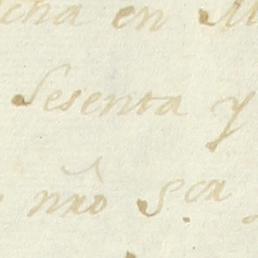 cha en M
Sesenta y
nrõ S.or